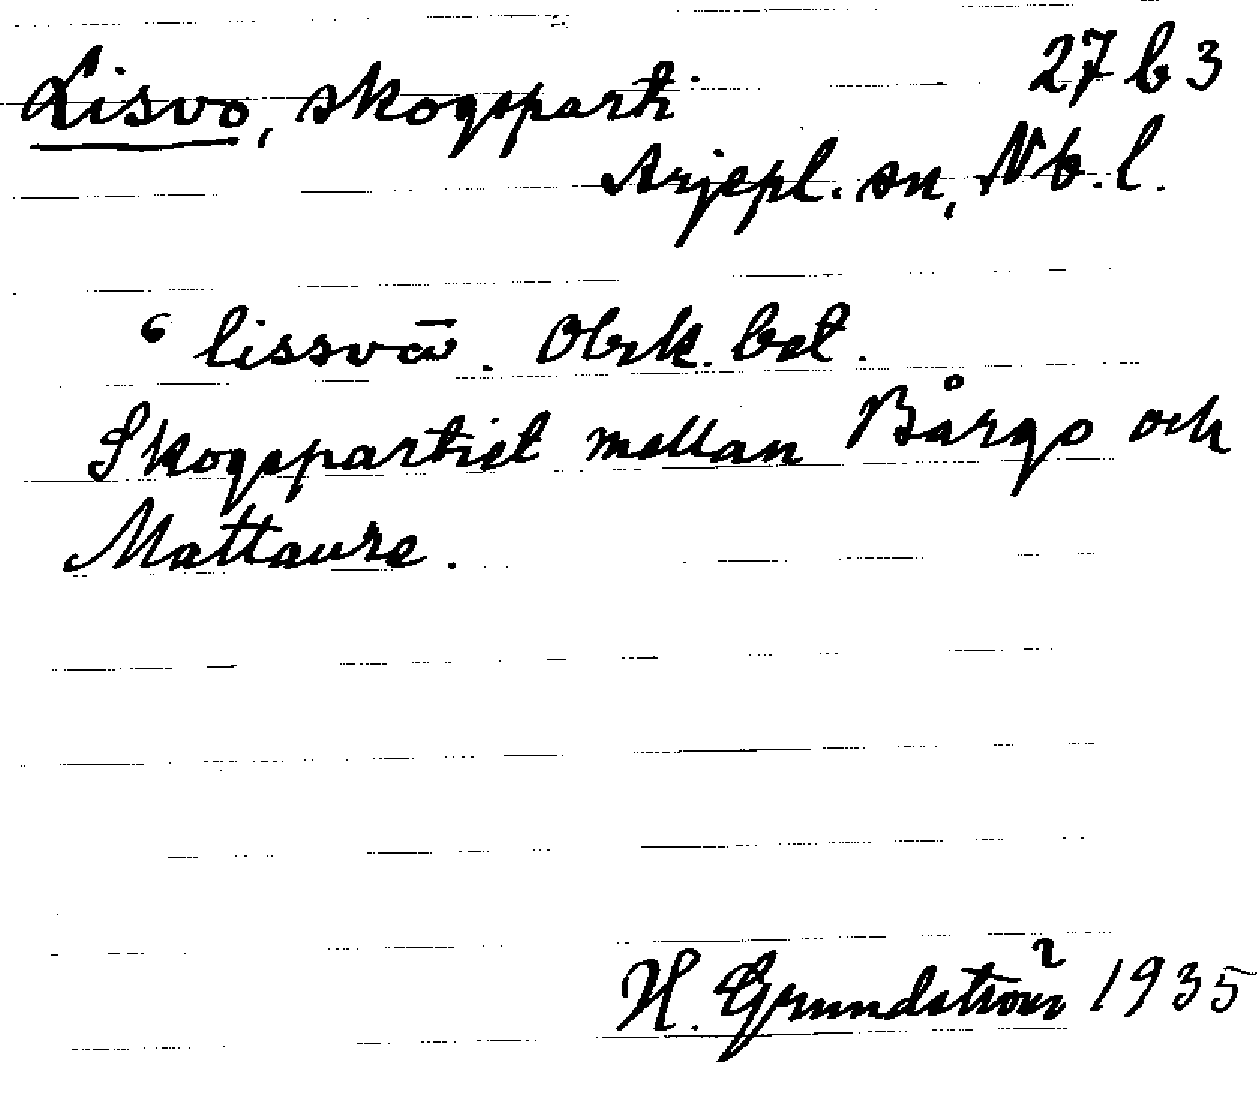 Lisvo, skogsparti 27 b 3
Arjepl. sn, Nb. l.
‘lissvā. Obek. bet.
Skogspartiet mellan Bårgo och
Mattaure.
H. Grundström 1935